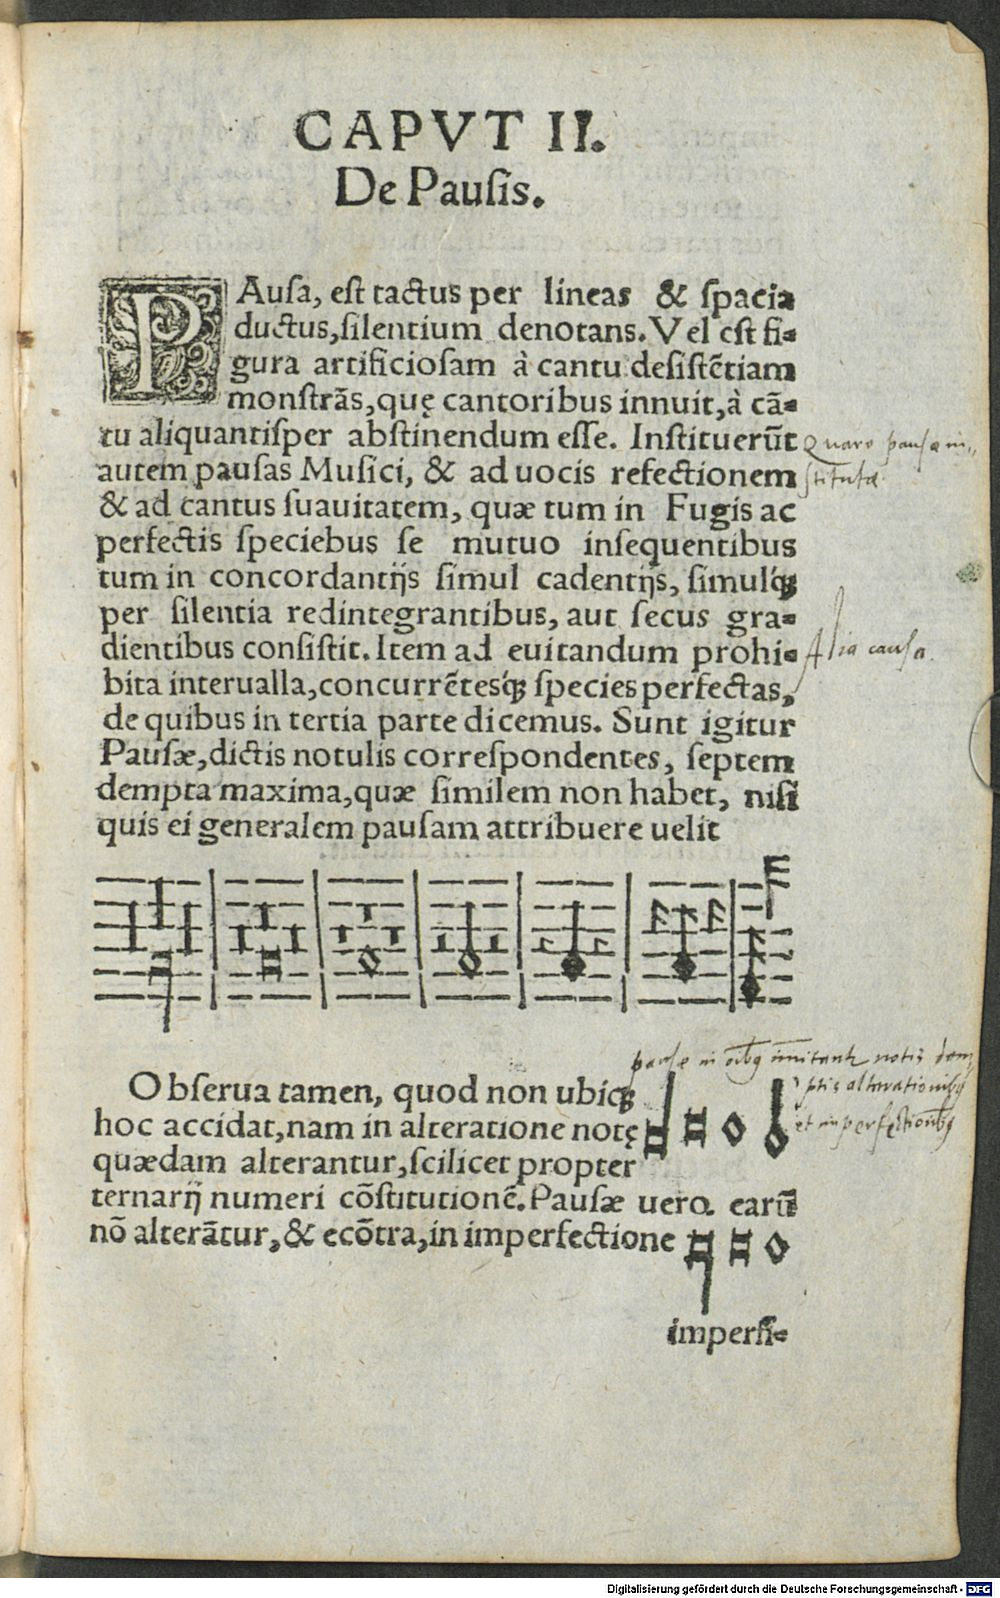 CAPVT II.
De Pausis.
PAusa, est tactus per lineas & spacia
ductus, silentium denotans. Vel est fi=
gura artificiosam à cantu desistẽtiam
monstrãs, quę cantoribus innuit, à cã=
tu aliquantisper abstinendum esse. Instituerũt
Quare pausæ in„
autem pausas Musici, & ad uocis refectionem
stitutæ
& ad cantus suauitatem, quæ tum in Fugis ac
perfectis speciebus se mutuo insequentibus
tum in concordantijs simul cadentijs, simulq́;
per silentia redintegrantibus, aut secus gra=
dientibus consistit. Item ad euitandum prohi=
Alia causa.
bita interualla, concurrẽtesq́; species perfectas,
de quibus in tertia parte dicemus. Sunt igitur
Pausæ, dictis notulis correspondentes, septem
dempta maxima, quæ similem non habet, nisi
quis ei generalem pausam attribuere uelit
pausæ in notis
Obserua tamen, quod non ubiq;
alterationibq
hoc accidat, nam in alteratione notę
et imperfectionibq
quædam alterantur, scilicet propter
ternarij numeri cõstitutionẽ. Pausæ uero earũ
nõ alterãtur, & ecõtra, in imperfectione
imperfi=
Digitalisierung gefördert durch die Deutsche Forschungsgemeinschaft - DFG